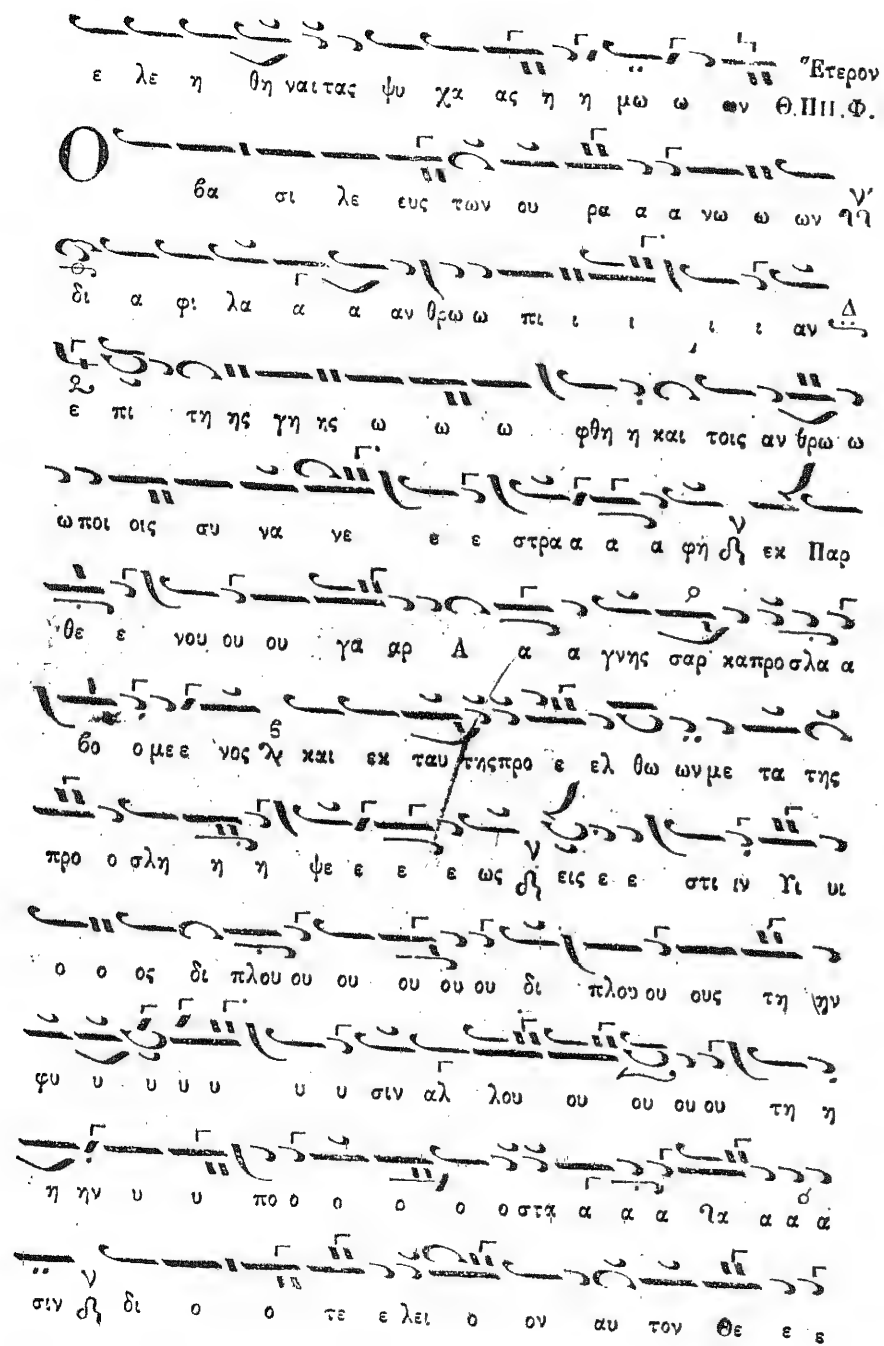 ε λε η θη ναι τας ψυ χα ας η η μω ω ων Ἕτερον Θ.Π.Π.Φ.
Ο βα σι λε ευς των ου ρα α α νω ω ων
δι α φι λα α α αν θρω ω πι ι ι ι ι αν Δ
ε πι τη ης γη ης ω ω ω φθη η και τοις αν θρω ω
ω ποι οις συ να νε ε ε στρα α α α φη ν εκ Παρ
θε ε νου ου ου γα αρ Α α α γνης σαρ κα προ σλα α
βο ο με ε νος και εκ ταυ της προ ε ελ θω ων με τα της
προ ο σλη η η ψε ε ε ε ως ν εις ε ε στι ιν Υι υι
ο ο ος δι πλου ου ου ου ου ου δι πλου ου ους τη ην
φυ υ υ υ υ υ υ σιν αλ λου ου ου ου ου τη η
η ην υ υ πο ο ο ο ο ο στα α α α α α α
σιν ν δι ο ο τε ε λει ο ον αυ τον Θε ε ε